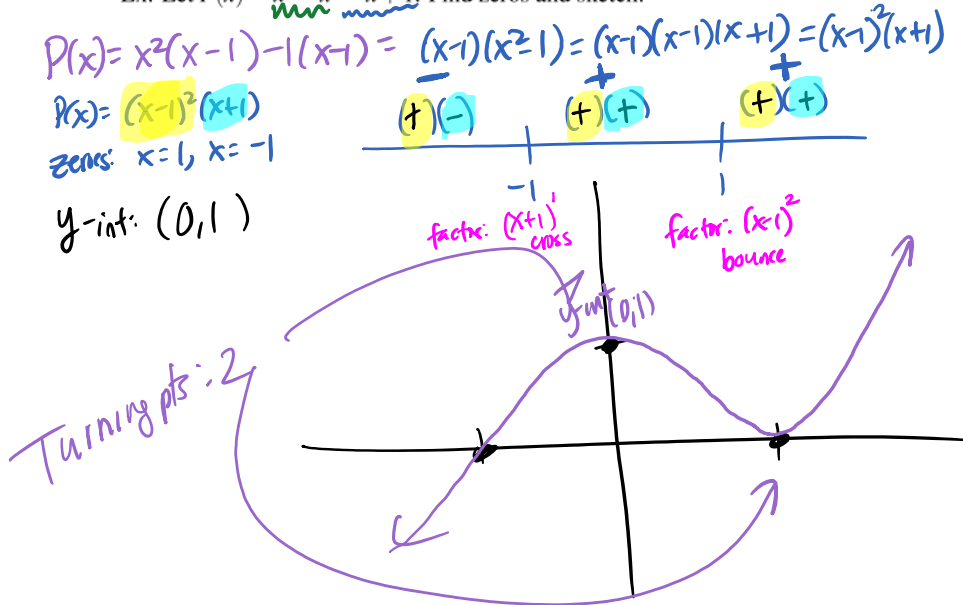 P(x)= x²(x-1)-1(x-1)= (x-1)(x²-1)= (x-1)(x-1)(x+1)=(x-1)²(x+1)
P(x)= (x-1)²(x+1)
− + +
(+)(-) (+)(+) (+)(+)
zeros: x=1, x=-1
-1 1
y-int: (0,1)
factor: (x+1)¹ factor: (x-1)²
cross bounce
y-int(0,1)
Turning pts: 2